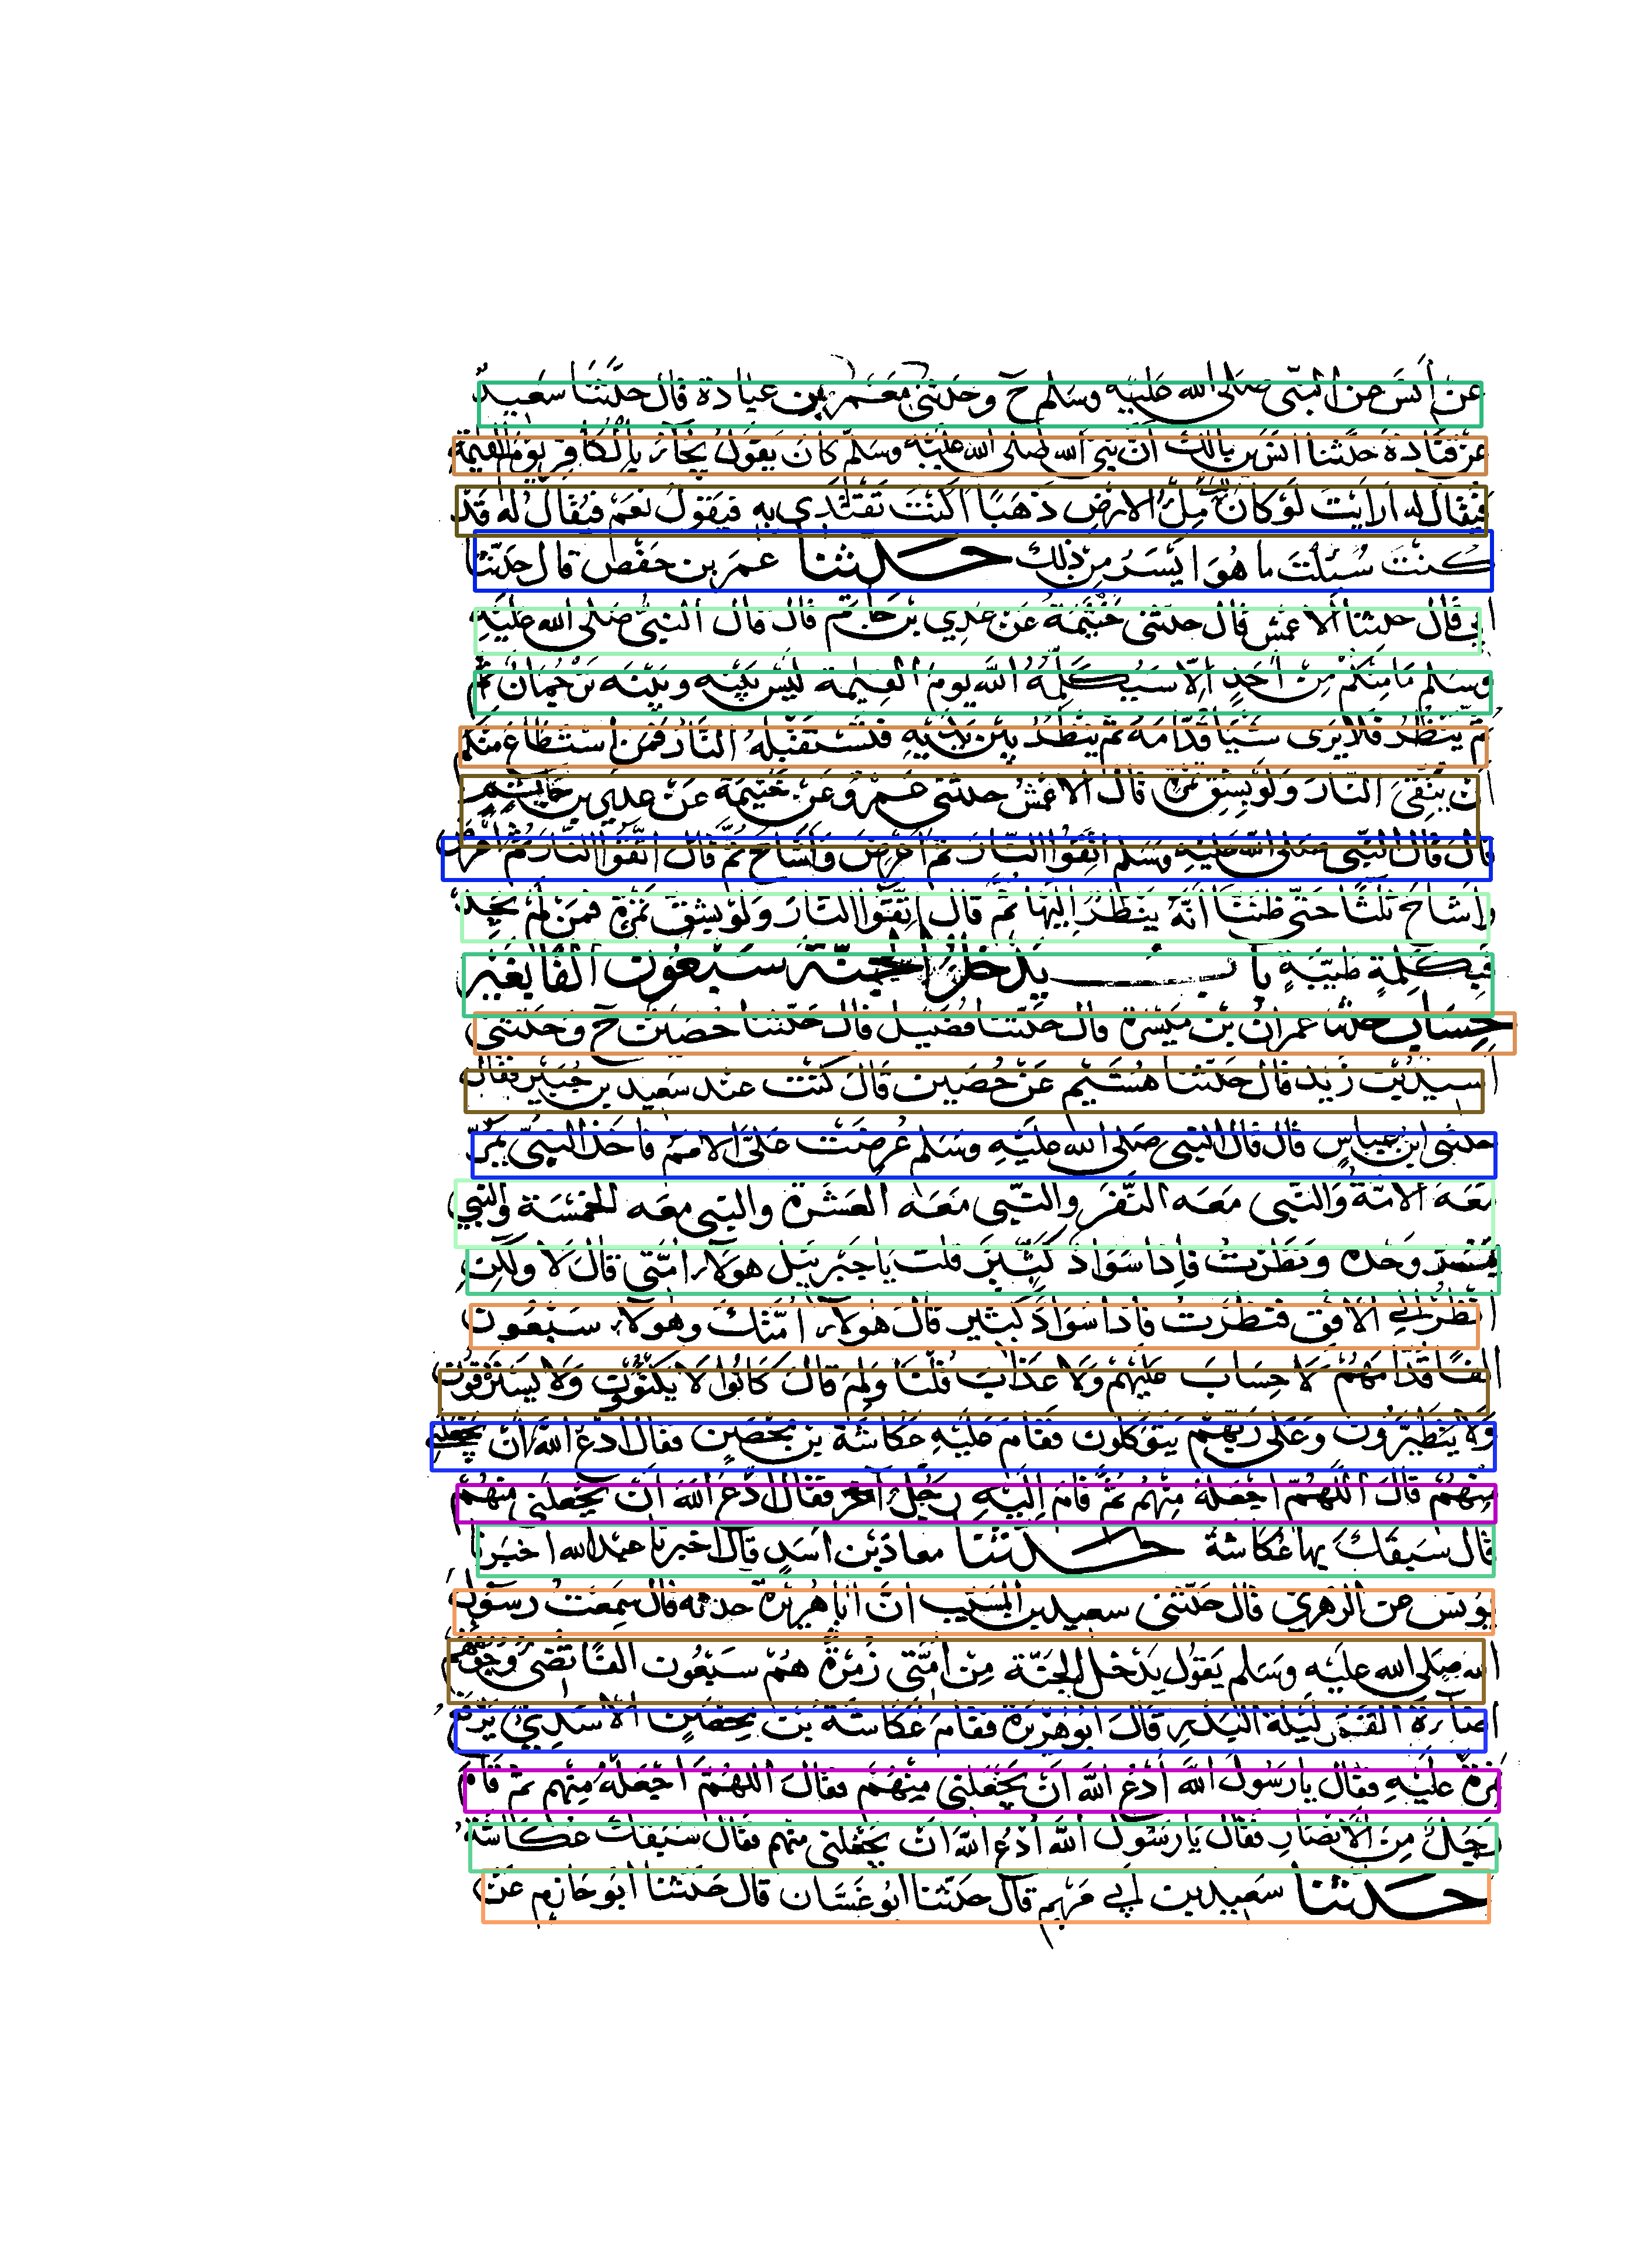 عن أنس عن النبي صلى الله عليه وسلم ح وحدثني معمر بن عبادة قال حدثنا سعيد
عن قتادة حدثنا انس بن مالك أن نبي الله صلى الله عليه وسلم كان يقول يجاء بالكافر يوم القيمة
فيقال له ارايت لو كان لك ملء الارض ذهبا اكنت تفتدي به فيقول نعم فيقال له قد
كنت سئلت ما هو ايسر من ذلك حدثنا عمر بن حفص قال حدثنا
ابي قال حدثنا الاعمش قال حدثني خيثمة عن عدي بن حاتم قال قال النبي صلى الله عليه
وسلم ما منكم من أحد الا سيكلمه الله يوم القيمة ليس بينه وبينه ترجمان ثم
ثم ينظر فلا يرى شيئا قدامه ثم ينظر بين يديه فتستقبله النار فمن استطاع منكم
أن يتقى النار ولو بشق تمرة قال الاعمش حدثني عمرو عن خيثمة عن عدي بن حاتم
قال قال النبي صلى الله عليه وسلم اتقوا النار ثم اعرض واشاح ثم قال اتقوا النار ثم اعرض
واشاح ثلثا حتى ظننا أنه ينظر اليها ثم قال اتقوا النار ولو بشق تمرة فمن لم يجد
فبكلمة طيبة باب يدخل الجنة سبعون الفا بغير
حساب حدثنا عمران بن ميسرة قال حدثنا فضيل قال حدثنا حصين ح وحدثني
اسيد بن زيد قال حدثنا هشيم عن حصين قال كنت عند سعيد بن جبير فقال
حدثني ابن عباس قال قال النبي صلى الله عليه وسلم عرضت على الامم فاخذ النبي يمر
معه الامة والنبي معه النفر والنبي معه العشرة والنبي معه الخمسة والنبي
وحده ونظرت فاذا سواد كثير قلت يا جبريل هولاء امتي قال لا ولكن
انظر الى الافق فنظرت فاذا سواد كثير قال هولاء امتك وهولاء سبعون
الفا قدامهم لا حساب عليهم ولا عذاب قلت ولم قال كانوا لا يكتوون ولا يسترقون
ولا يتطيرون وعلى ربهم يتوكلون فقام عليه عكاشة بن محصن فقال ادع الله ان يجعلني
منهم قال اللهم اجعله منهم ثم قام اليه رجل آخر فقال ادع الله ان يجعلني منهم
قال سبقك بها عكاشة حدثنا معاذ بن اسد قال اخبرنا عبد الله اخبرنا
يونس عن الزهري قال حدثني سعيد بن المسيب ان ابا هريرة حدثه قال سمعت رسول
الله صلى الله عليه وسلم يقول يدخل الجنة من امتي زمرة هم سبعون الفا تضئ وجوههم
اضاءة القمر ليلة البدر قال ابو هريرة فقام عكاشة بن محصن الاسدي يرفع
نمرة عليه فقال يا رسول الله أدع الله ان يجعلني منهم فقال اللهم اجعله منهم ثم قام
رجل من الانصار فقال يا رسول الله أدع الله ان يجعلني منهم فقال سبقك عكاشة
حدثنا سعيد بن ابي مريم قال حدثنا ابو غسان قال حدثنا ابو حازم عن